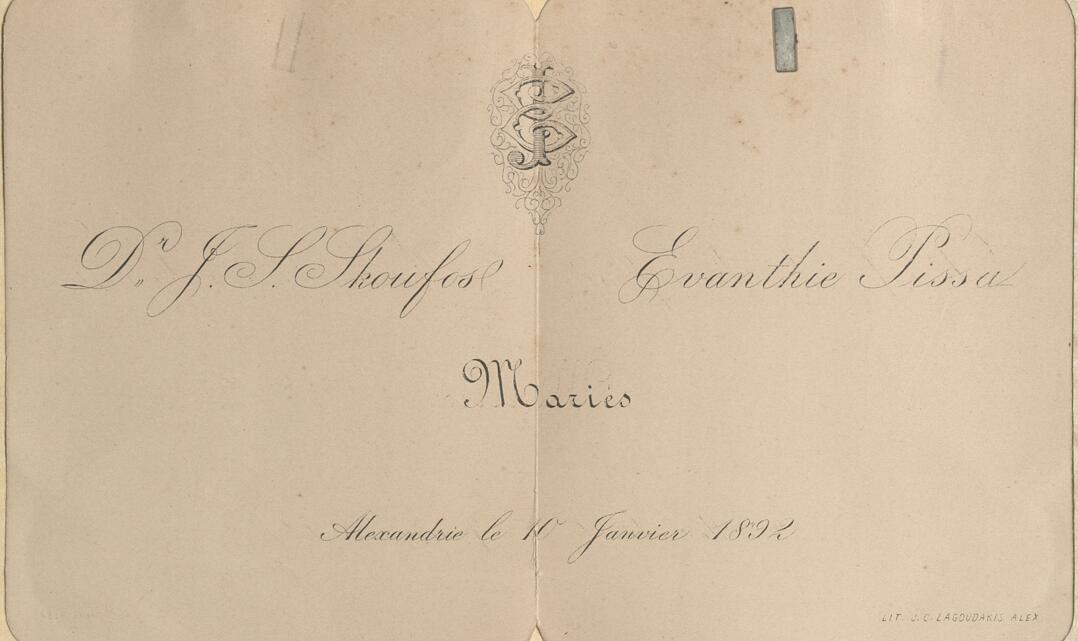 Dr. J. S. Skoufos Evanthie Pissa
Mariés
Alexandrie le 10 Janvier 1892
LIT. J. C. LAGOUDAKIS ALEX